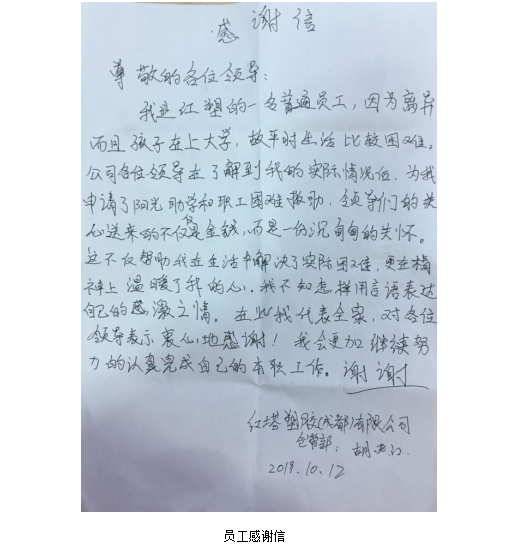 感谢信
尊敬的各位领导:
我是红塑的一名普通员工,因为离异
而且孩子在上大学,故平时生活比较困难。
公司各位领导在了解到我的实际情况后,为我
申请了阳光助学和职工困难救助,领导们的关
心送来的不仅仅是金钱,而是一份沉甸甸的关怀。
这不仅帮助我在生活中解决了实际困难,更在精
神上温暖了我的心,我不知怎样用言语表达
自己的感激之情。在此我代表全家,对各位
领导表示衷心地感谢!我会更加继续努
力的认真完成自己的本职工作。谢谢
红塔塑胶(成都)有限公司
仓管部:胡
2019.10.12
员工感谢信